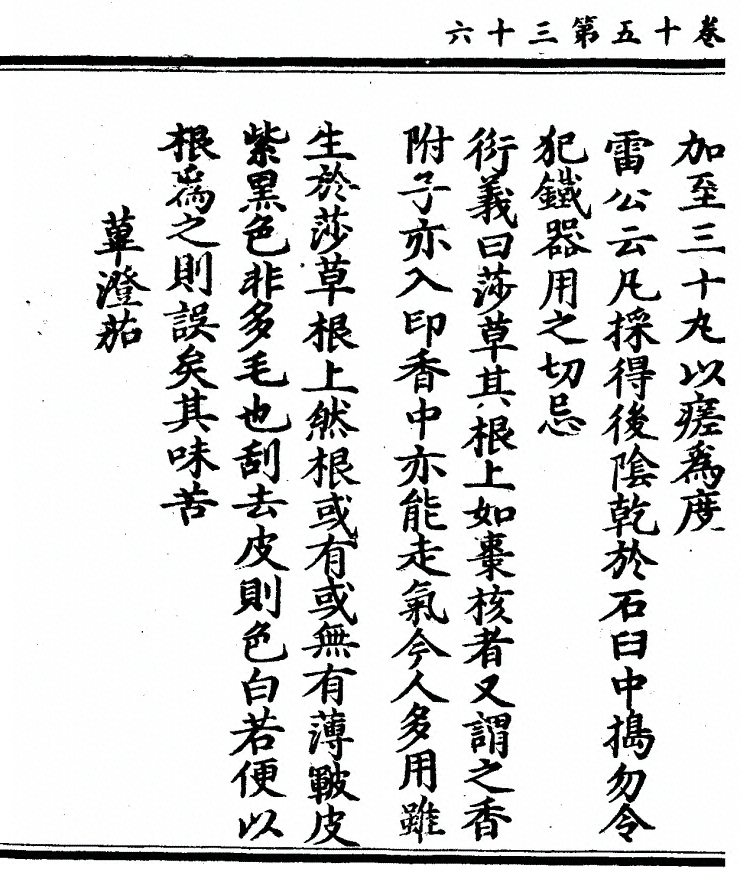 卷十五第三十六
加至三十丸以瘥爲度
雷公云凡採得後陰乾於石臼中搗勿令
犯鐵器用之切忌
衍義曰莎草其根上如棗核者又謂之香
附子亦入印香中亦能走氣今人多用雖
生於莎草根上然根或有或無有薄皸皮
紫黑色非多毛也刮去皮則色白若便以
根爲之則誤矣其味苦
蓽澄茄